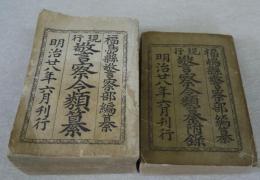 福島縣警察部編纂
現行
警察令類纂
明治廿八年六月刊行
福島縣警察部編纂
現行
警察令類纂附錄
明治廿八年六月刊行